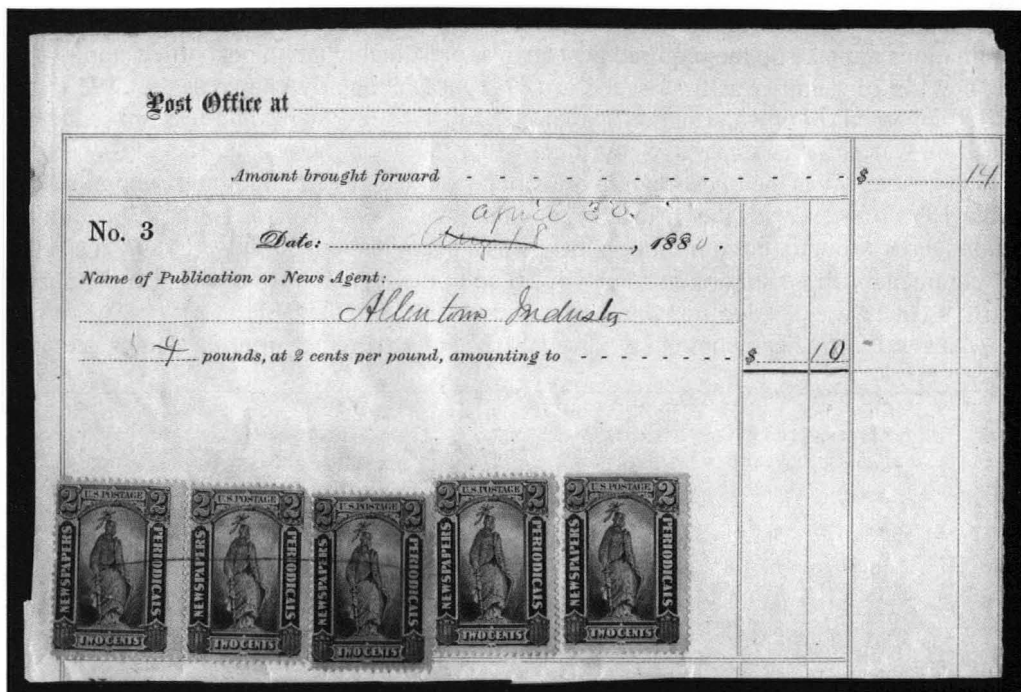 Post Office at
Amount brought forward - - - - - - - - - - - - - $ 14
april 30.
No. 3 Date: Aug 18, 1880.
Name of Publication or News Agent:
Allentown Industry
4 pounds, at 2 cents per pound, amounting to - - - - - - - $ 10
2 U.S. POSTAGE 2 NEWSPAPERS PERIODICALS TWO CENTS
2 U.S. POSTAGE 2 NEWSPAPERS PERIODICALS TWO CENTS
2 U.S. POSTAGE 2 NEWSPAPERS PERIODICALS TWO CENTS
2 U.S. POSTAGE 2 NEWSPAPERS PERIODICALS TWO CENTS
2 U.S. POSTAGE 2 NEWSPAPERS PERIODICALS TWO CENTS